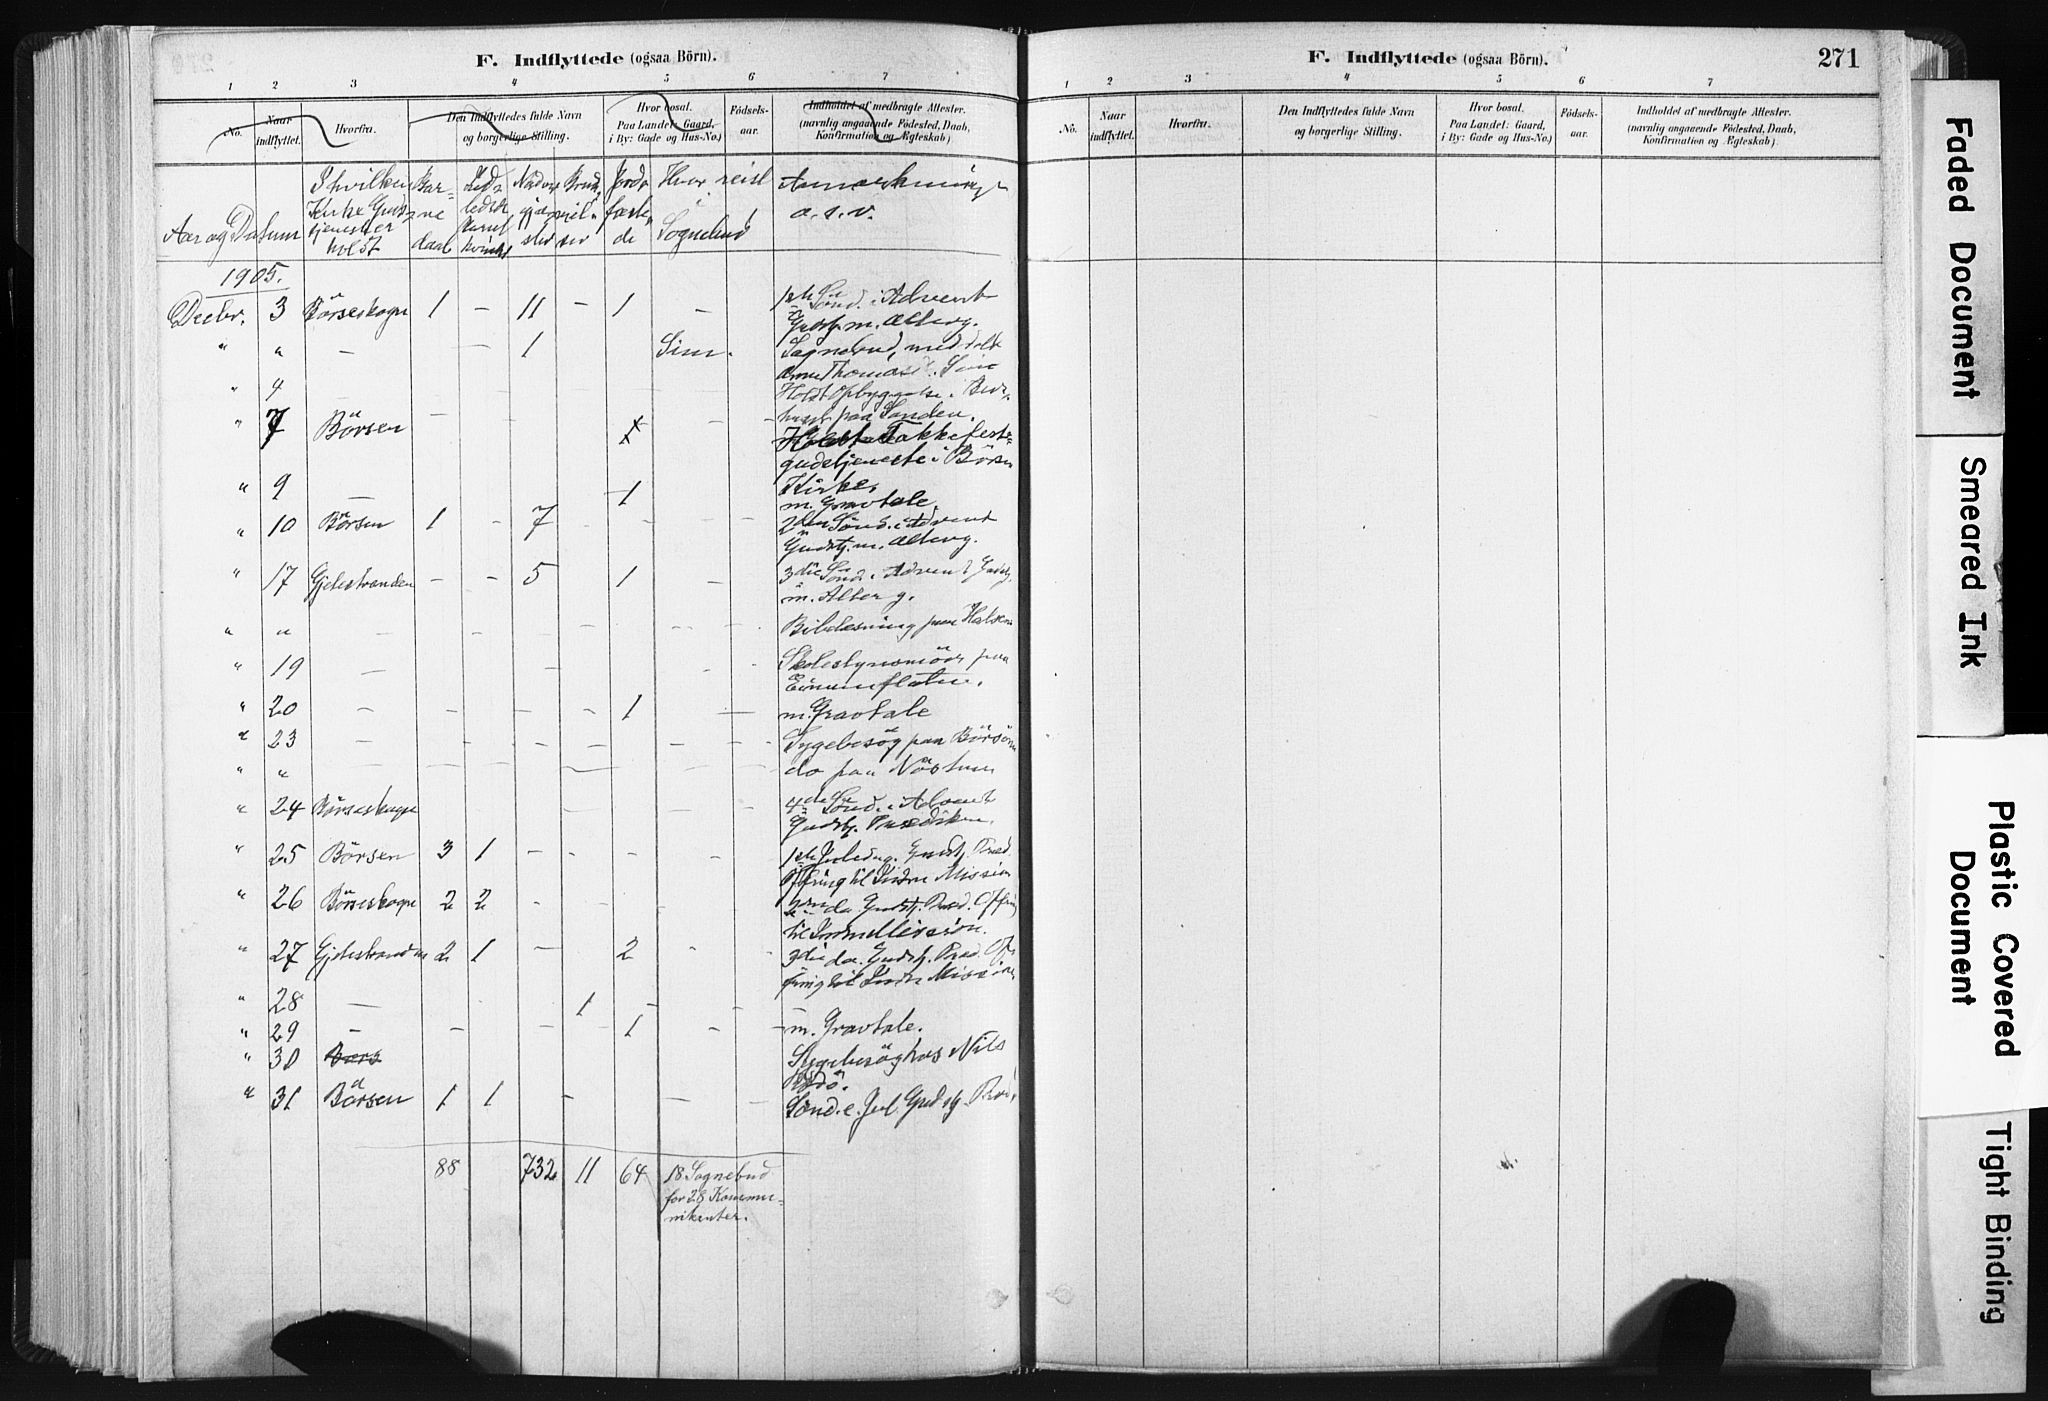 F. Indflyttede (ogsaa Börn).
1 2 3 4 5 6 7
No. Naar indflyttet. Hvorfra. Den Indflyttedes fulde Navn og borgerlige Stilling. Hvor bosat. Paa Landet: Gaard, i By: Gade og Hus-No.) Födsels-aar. Indholdet af medbragte Attester. (navnlig angaaende Födested, Daab, Konfirmation og Ægteskab).
Aar og Datum I hvilken Kirke Guds tjenester holdt Bar-ne daab Nadver gjæ ster Jorde fæste de Hvor reist i Sognebud Anmærkning a.s.v.
1905.
Decbr. 3 Börseskogn 1 - 11 - 1 - 1ste Sönd. i Advent
Gudstj. m. Altberg.
" " - - 1 Sim. Sognebud, meddelt
Thomas
" 4 Holdt Opbyggelse i Bede-
huset paa Sanden.
" 7 Börsen - - - Holdt Takkefest-
gudstjeneste i Börsen
Kirke.
" 9 - 1 m. Gravtale.
" 10 Börsen 1 - 7 - - - - 2den Sönd. i Advent
Gudstj. m. Altberg.
" 17 Gjelestranden - - 5 1 - 3die Sönd. i Advent Gudstj.
m. Alterg.
" " - - - - - - Bibellæsning paa Halsen
" 19 - - - - Skolestyremöde paa
" 20 - - - - 1 - m. Gravtale
" 23 - - - - - - - - Sygebesög paa Börsöen
" " - - - - - - - - do paa Nöstum
" 24 Börseskogn 4de Sönd. i Advent
Gudstj. Prædiken.
" 25 Börsen 3 1 - - - - 1ste Juledag. Gudstj. Præd.
Ofring til Indre Mission
" 26 Börseskogn 2 2 - - - 2den do Gudstj. Præd. Ofring
til Indre Mission.
" 27 Gjelestranden 2 1 - 2 - - 3die do. Gudstj. Præd. Of-
fring til Indre Mission
" 28 - 1 - -
" 29 - - - 1 - - m. Gravtale.
" 30 Börs Sygebesög hos Nils
" 31 Börsen 1 1 - - - Sönd. e. Jul. Gudstj. Præd.
88 732 11 64 18 Sognebud
for 28 Kommu-
nikanter.
F. Indflyttede (ogsaa Börn). 271
1 2 3 4 5 6 7
No. Naar indflyttet. Hvorfra. Den Indflyttedes fulde Navn og borgerlige Stilling. Hvor bosat. Paa Landet: Gaard, i By: Gade og Hus-No.) Födsels-aar. Indholdet af medbragte Attester. (navnlig angaaende Födested, Daab, Konfirmation og Ægteskab).
Faded Document
Smeared Ink
Plastic Covered Document
Tight Binding